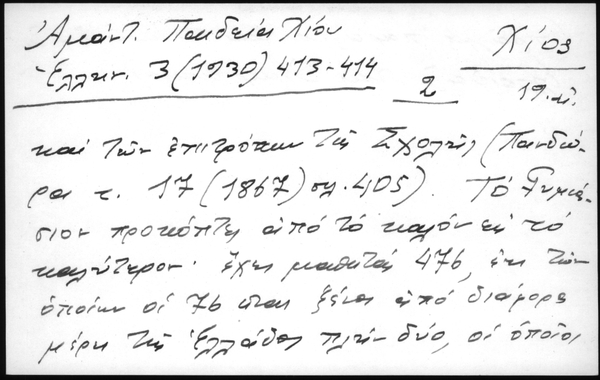 Ἀμάντ. Παιδεία Χίου
Ἑλλην. 3 (1930) 413-414
Χίος
2
19. αἰ.
καὶ τῶν ἐπιτρόπων τῆς Σχολῆς (Πανδώ-
ρα τ. 17 (1867) σλ. 405). Τὸ Γυμνά-
σιον προκόπτει ἀπὸ τὸ καλὸν εἰς τὸ
καλύτερον· ἔχει μαθητάς 476, ἐκ τῶν
ὁποίων οἱ 76 εἶναι ξένοι ἀπὸ διάφορα
μέρη τῆς Ἑλλάδος πλὴν δύο, οἱ ὁποῖοι